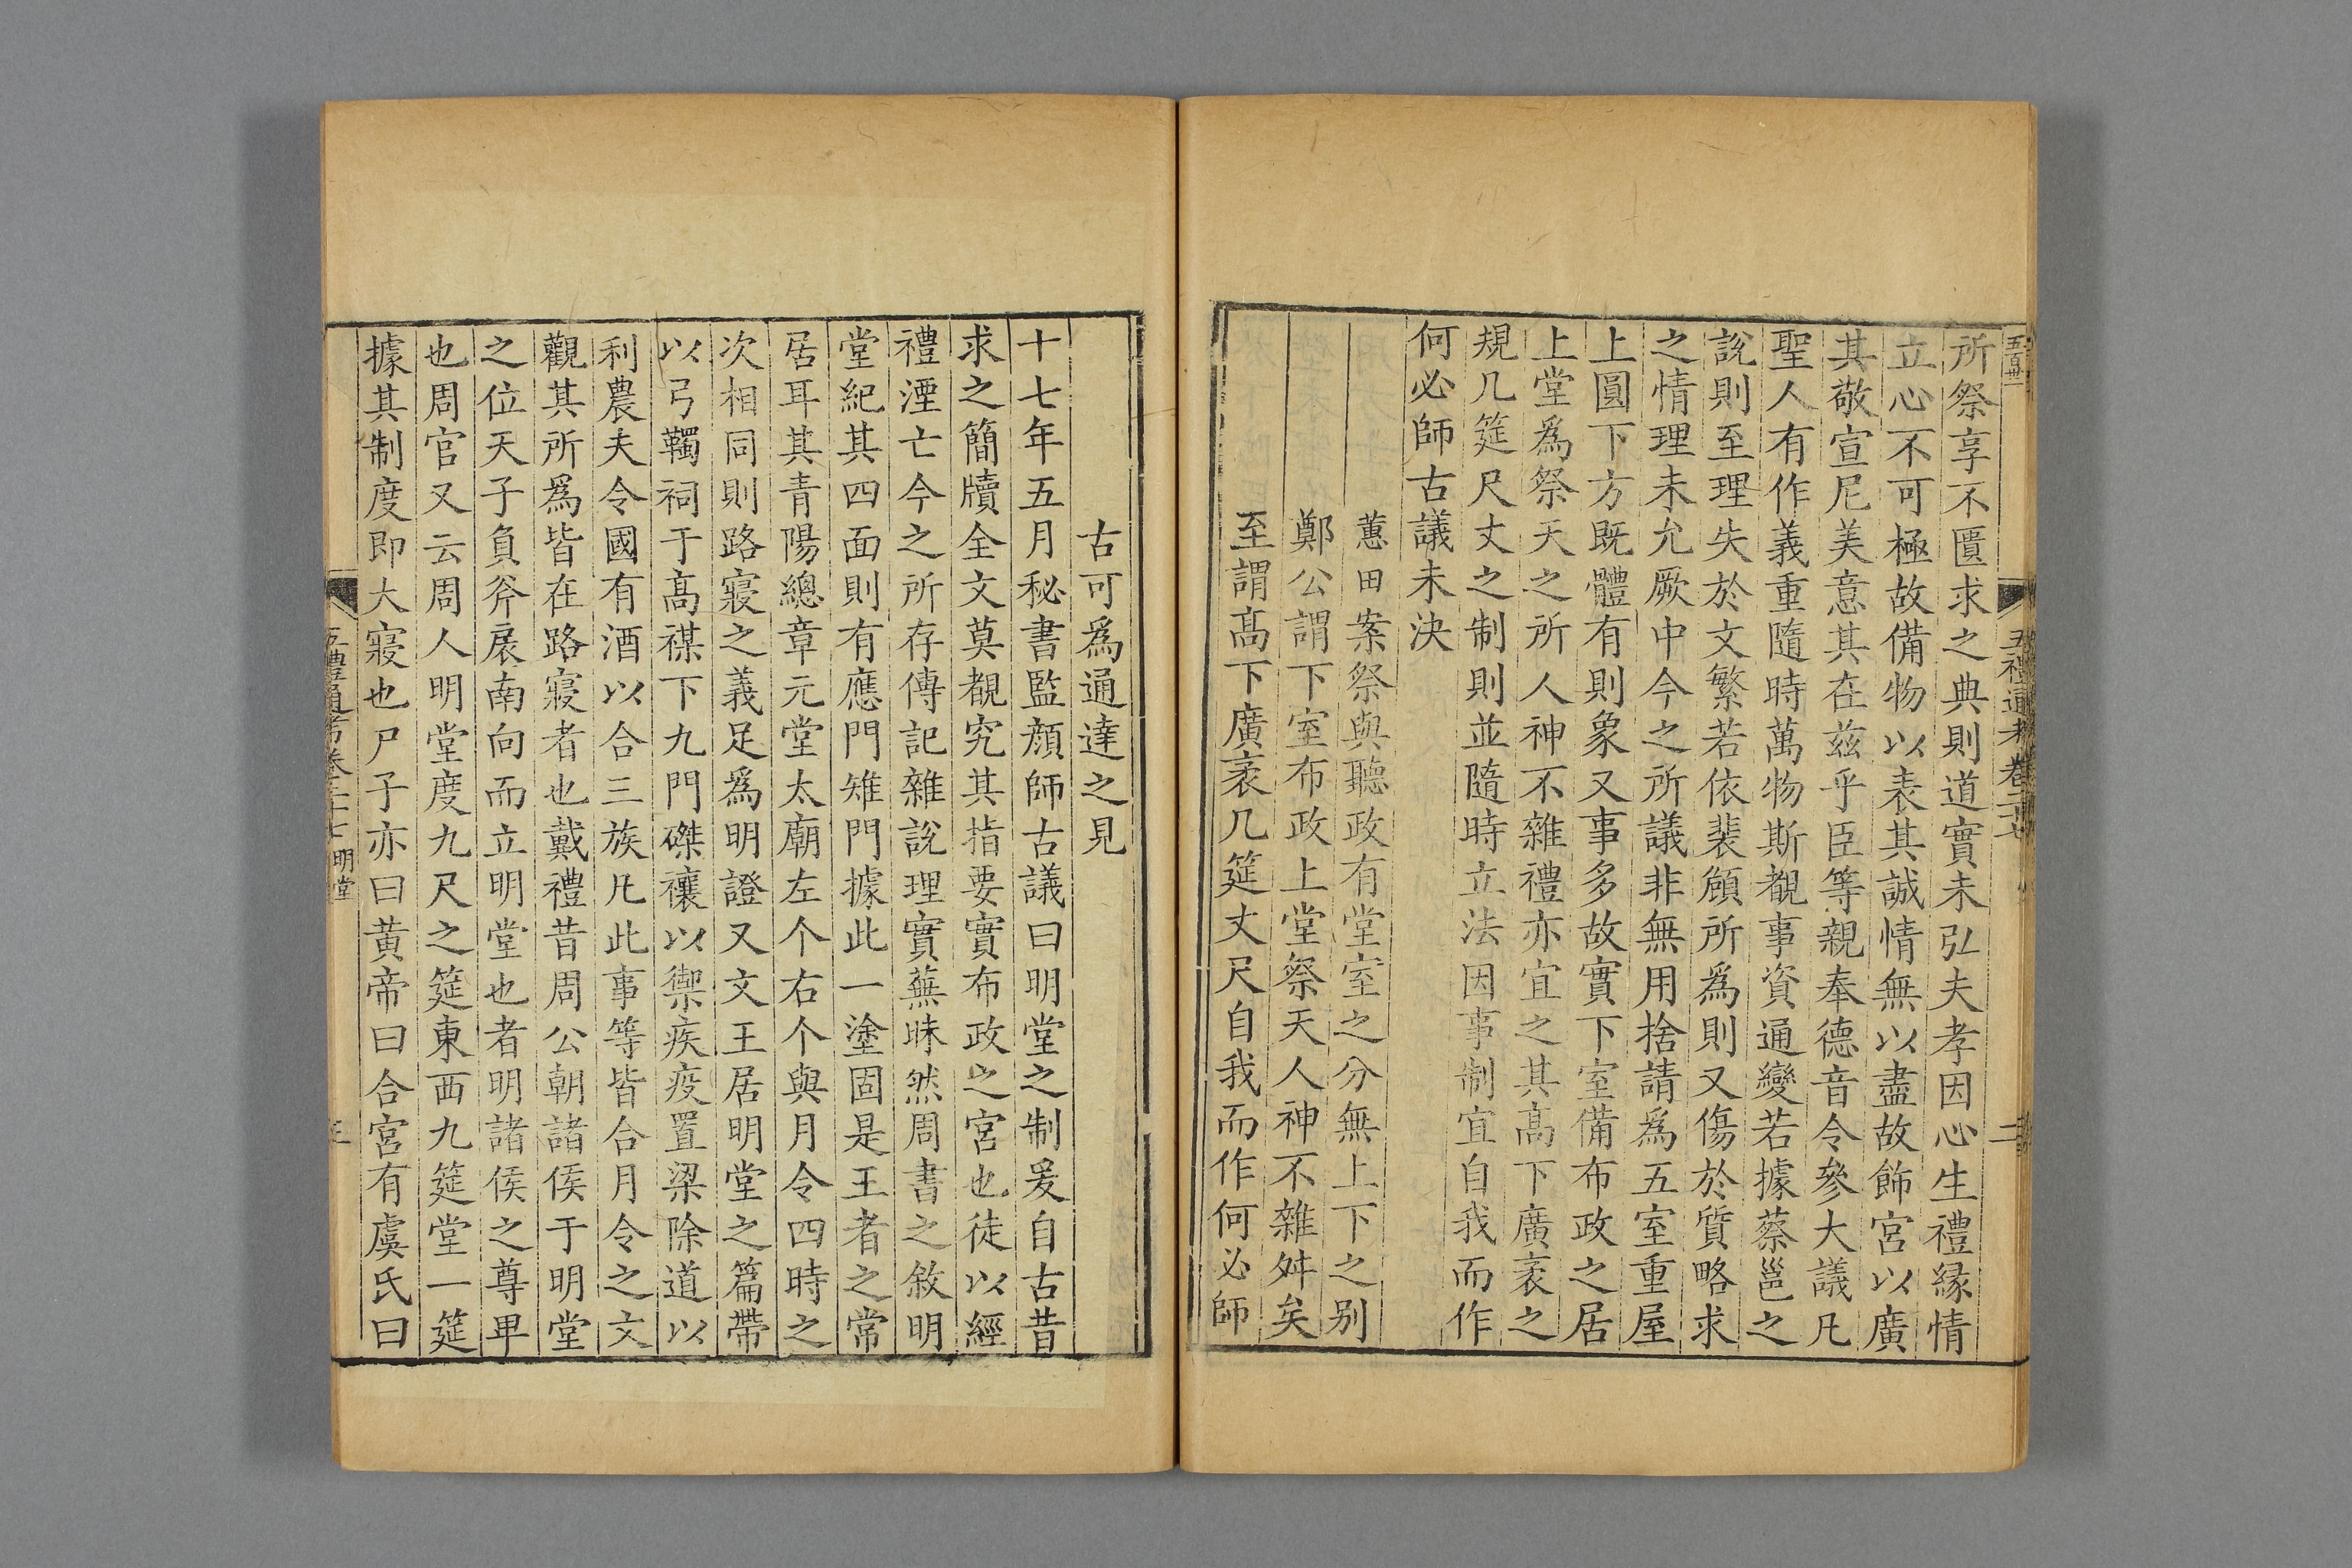 五百卅
五禮通考卷二十七
二
所祭享不匱求之典則道實未弘夫孝因心生禮緣情
立心不可極故備物以表其誠情無以盡故飾宮以廣
其敬宣尼美意其在茲乎臣等親奉德音令參大議凡
聖人有作義重隨時萬物斯覩事資通變若據蔡邕之
說則至理失於文繁若依裴頠所爲則又傷於質略求
之情理未允厥中今之所議非無用捨請爲五室重屋
上圓下方既體有則象又事多故實下室備布政之居
上堂爲祭天之所人神不雜禮亦宜之其高下廣袤之
規几筵尺丈之制則並隨時立法因事制宜自我而作
何必師古議未決
蕙田案祭與聽政有堂室之分無上下之别
鄭公謂下室布政上堂祭天人神不雜舛矣
至謂高下廣袤几筵丈尺自我而作何必師
古可爲通達之見
十七年五月秘書監顏師古議曰明堂之制爰自古昔
求之簡牘全文莫覩究其指要實布政之宮也徒以經
禮湮亡今之所存傳記雜說理實蕪昧然周書之敘明
堂紀其四面則有應門雉門據此一塗固是王者之常
居耳其青陽總章元堂太廟左个右个與月令四時之
次相同則路寢之義足爲明證又文王居明堂之篇帶
以弓韣祠于高禖下九門磔禳以禦疾疫置梁除道以
利農夫令國有酒以合三族凡此事等皆合月令之文
觀其所爲皆在路寢者也戴禮昔周公朝諸侯于明堂
之位天子負斧扆南向而立明堂也者明諸侯之尊卑
也周官又云周人明堂度九尺之筵東西九筵堂一筵
據其制度即大寢也尸子亦曰黃帝曰合宮有虞氏曰
五禮通考卷二十七 明堂